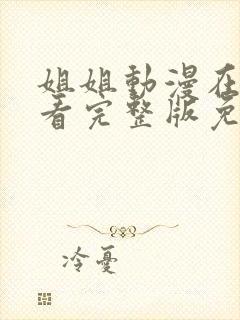 姐姐動漫在
看完整版免
冷憂